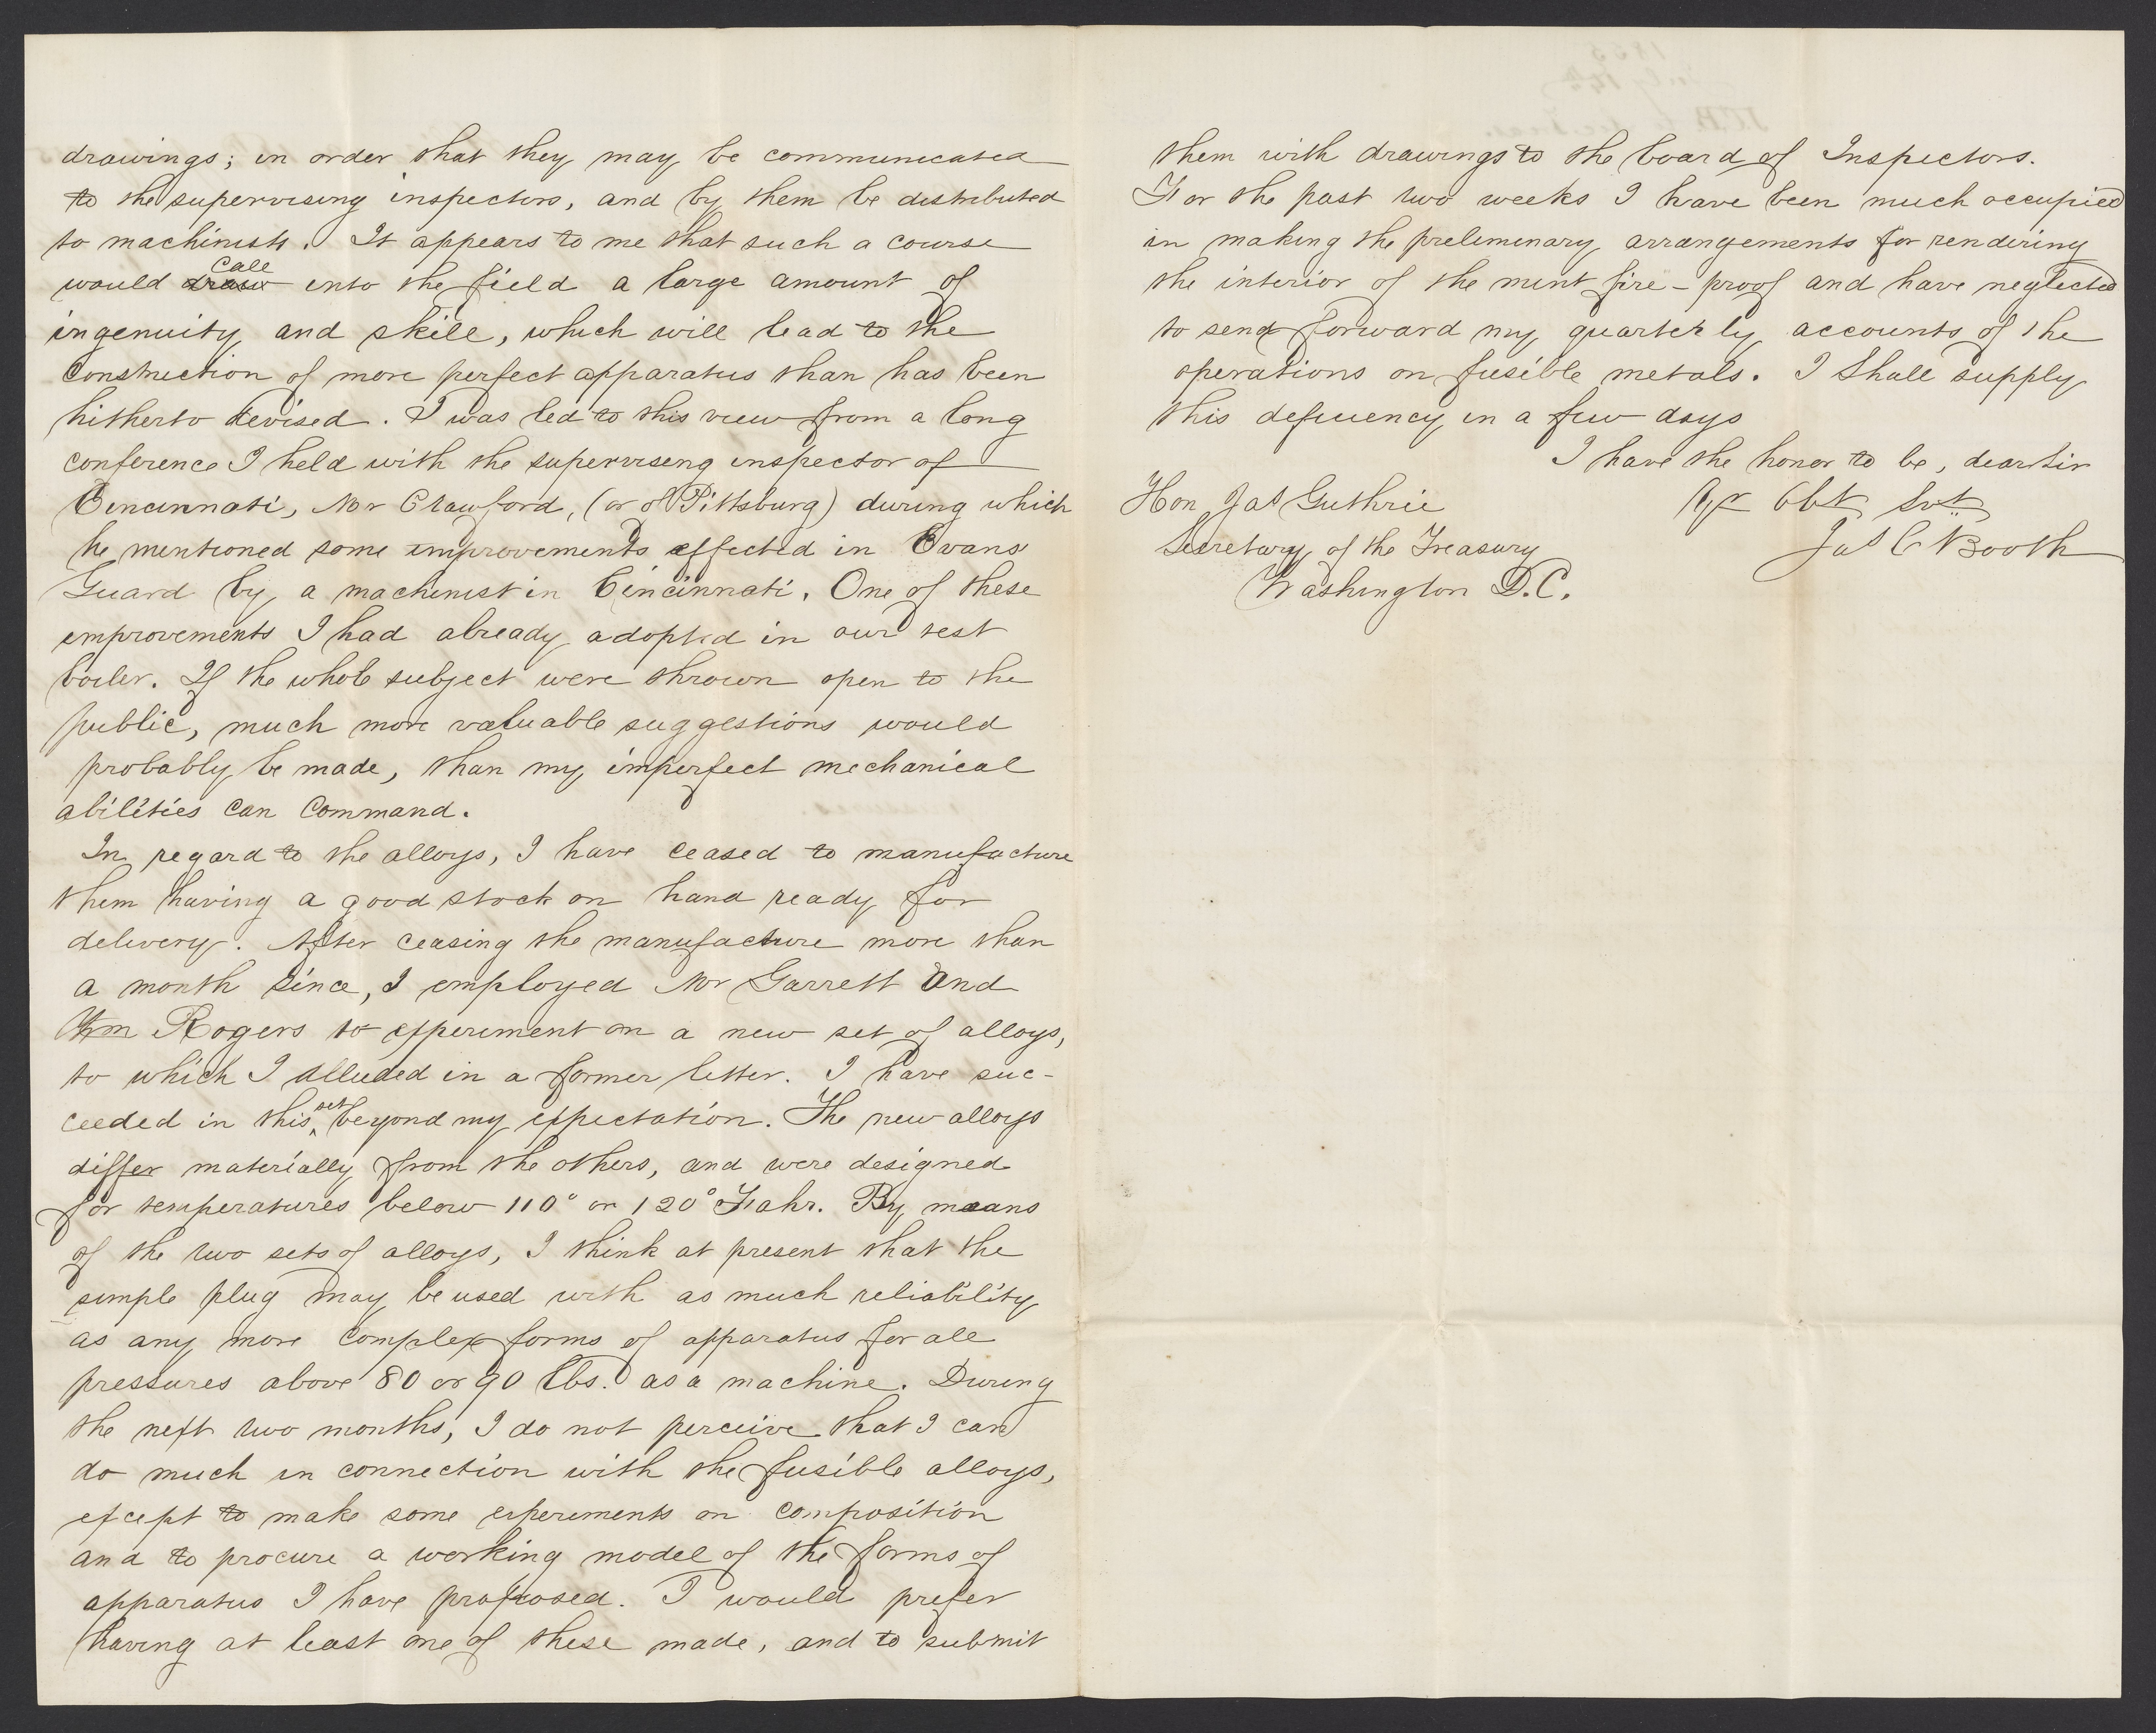 drawings; in order that they may be communicated
to the supervising inspectors, and by them be distributed
to machinists. It appears to me that such a course
call
would draw into the field a large amount of
ingenuity and skill, which will lead to the
construction of more perfect apparatus than has been
hitherto devised. I was led to this view from a long
conference I held with the supervising inspector of
Cincinnati, Mr Crawford, (or of Pittsburg) during which
he mentioned some improvements effected in Evans
Guard by a machinist in Cincinnati. One of these
improvements I had already adopted in our test
boiler. If the whole subject were thrown open to the
public, much more valuable suggestions would
probably be made, than my imperfect mechanical
abilities can command.
In regard to the alloys, I have ceased to manufacture
them having a good stock on hand ready for
delivery. After ceasing the manufacture more than
a month since, I employed Mr Garrett and
Wm Rogers to experiment on a new set of alloys,
to which I alluded in a former letter. I have suc-
ceeded in this set beyond my expectation. The new alloys
differ materially from the others, and were designed
for temperatures below 110° or 120° Fahr. By means
of the two sets of alloys, I think at present that the
simple plug may be used with as much reliability
as any more complex forms of apparatus for all
pressures above 80 or 90 lbs. as a machine. During
the next two months, I do not perceive that I can
do much in connection with the fusible alloys,
except to make some experiments on composition
and to procure a working model of the forms of
apparatus I have proposed. I would prefer
having at least one of these made, and to submit
them with drawings to the board of Inspectors.
For the past two weeks I have been much occupied
in making the preliminary arrangements for rendering
the interior of the mint fire-proof and have neglected
to send forward my quarterly accounts of the
operations on fusible metals. I shall supply
this deficiency in a few days
I have the honor to be, dear Sir
Hon Jas Guthrie
Yr Obt Svt
Secretary of the Treasury
Jas C Booth
Washington D.C.